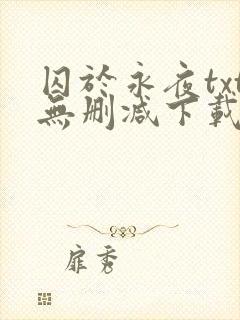 囚於永夜txt
無刪減下載
扉秀